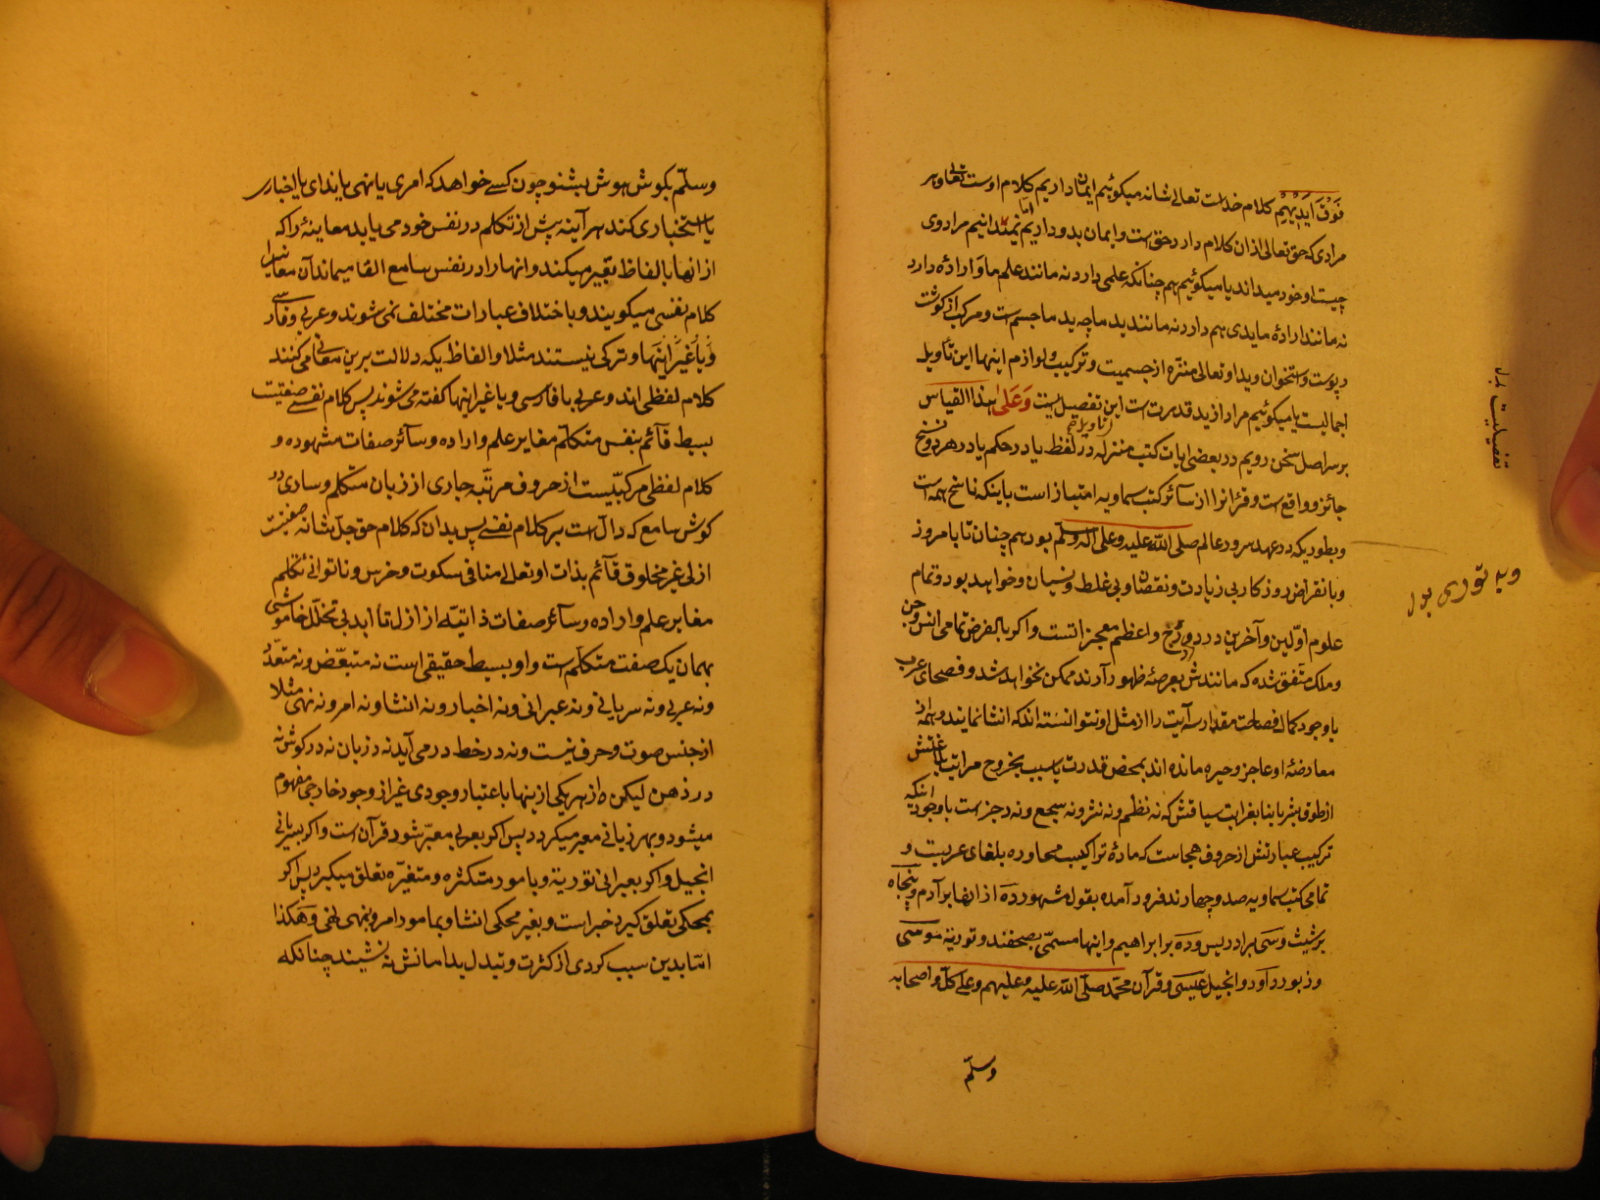 فَوْقَ اَيْدِيهِمْ کلام خداست تعالی شانه میکوئیم ایمان داریم کلام اوست تعالی و هر
مرادی که حق تعالی ازان کلام دارد حق است و ایمان بدو داریم اما نمیدانیم مراد وی
چیست او خود میداند یا میکوئیم هم چنانکه علمی دارد نه مانند علم ما و ارادهٔ دارد
نه مانند ارادهٔ ما یدی هم دارد نه مانند ید ما چه ید ما جسم است و مرکب از کوشت
و پوست و استخوان و ید او تعالی منزّه از جسمیت و ترکیب و لوازم اینها این تأویل
اجمالیست یا میکوئیم مراد از ید قدرت است این تفصیلیست وَعَلیٰ هذا القیاس
بر سر اصل سخن رویم در بعضی ایات کتب منزله در لفظ یا در حکم یا در هر دو نسخ
جائز و واقع است و قرانرا از سائر کتب سماویه امتیاز است باینکه ناسخ همه است
و بطوریکه در عهد سرور عالم صلی الله علیه وعلی آله وسلم بود هم چنان تا بامروز
و بانقراض روزکار بی زیادت و نقصان و بی غلط و نسیان و خواهد بود و تمام
علوم اوّلین و آخرین در درج و اعظم معجزاتست و اکر بالفرض تمامی انس و جن
و ملک متفق شده که مانندش بعرصهٔ ظهور آرند ممکن نخواهد شد و فصحای عرب
با وجود کمال فصاحت مقدار سه آیت را از مثل او نتوانسته اند که انشا نمایند و همه از
معارضهٔ او عاجز و حیره مانده اند بمحض قدرت یا بسبب خروج مراتب بلاغتش
از طوق بشر یا بنا بغرابت سیاقش که نه نظم و نه نثر و نه سجع و نه رجز است با وجود اینکه
ترکیب عبارتش از حروف هجاست که مادهٔ تراکیب محاوره بلغای عربیت و
تمامی کتب سماویه صد و چهارند فرود آمده بقول مشهور ده از انها بر آدم و پنجاه
بر شیث و سی بر ادریس و ده بر ابراهیم و اینها مسمّی بصحفند و توریة موسی
و زبور داود و انجیل عیسی و قرآن محمد صلی الله علیه وعلیهم وعلی کل واصحابه
وسلّم
تفصیلیست بدل
وسلّم بکوش هوش بشنو چون کسی خواهد که امری یا نهی یا ندای یا اخباری
یا استخباری کند هر آینه پیش از تکلم در نفس خود می یابد معاینهٔ را که
از انها بالفاظ تعبیر میکند و انها را در نفس سامع القا مینماید آن معانیرا
کلام نفسی میکویند و باختلاف عبارات مختلف نمی شوند و عربی و فارسی
و یا غیر اینها و ترکی نیستند مثلا و الفاظ یکه دلالت برین معانی می کنند
کلام لفظی اند و عربی یا فارسی و یا غیر اینها کفته می شوند پس کلام نفسی صفتیست
بسیط قائم بنفس متکلم مغایر علم و اراده و سائر صفات مشهوده و
کلام لفظی مرکبیست از حروف مرتّبه جاری از زبان متکلم و ساری در
کوش سامع که دالّ است بر کلام نفسی پس بدان که کلام حق جلّ شانه صفتیست
ازلی غیر مخلوق قائم بذات او تعالی منافی سکوت و خرس و ناتوانی تکلم
مغایر علم و اراده و سائر صفات ذاتیه از ازل تا ابد بی تخلل خاموشی
بهمان یک صفت متکلم است و او بسیط حقیقی است نه متبعّض و نه متعدّد
و نه عربی و نه سریانی و نه عبرانی و نه اخبار و نه انشا و نه امر و نه نهی مثلا
از جنس صوت و حرف نیست و نه در خط در می آید نه در زبان نه در کوش نه
در ذهن لیکن از هر یکی ازینها باعتبار وجودی غیر از وجود خارجی مفهوم
میشود و بهر زبانی معبر میکردد پس اکر بعربی معبّر شود قرآن است و اکر بسریانی
انجیل و اکر بعبرانی توریة و بامور متکثره و متغیّره تعلق میکیرد پس اکر
بمحکی تعلق کیرد خبر است و بغیر محکی انشا و بمامور امر و بمنهی نهی و هکذا
امّا بدین سبب کردی از کثرت و تبدل بدامانش نه نشیند چنانکه